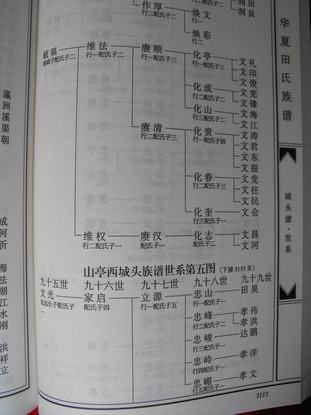 华夏田氏族谱
城头谱·世系
作厚
行二配氏子二
焕文
行一
焕彩
行二
润田
润良
毓福
维法
行一配氏子二
赓顺
行一配氏子三
化亭
行一配氏子三
文礼
文印
文俊
化成
行二配氏子二
文宪
文锋
化山
行三配氏子二
文海
文江
赓清
行二配氏子三
化贵
行一配氏子四
文涛
文君
文东
文振
化春
行二配氏子三
文党
文柱
文民
化奎
行三配氏子一
文会
维权
行二配氏子一
赓汉
配氏子一
化志
配氏子二
文昌
文河
山亭西城头族谱世系第五图（下接3133页）
九十五世 九十六世 九十七世 九十八世 九十九世
文光
家启
配氏子四
立源
行一配氏子五
忠山
行一配氏子一
田昊
忠峰
行二配氏子二
孝伟
孝洪
忠峻
行三配氏子一
达鹏
忠岭
行四配氏子一
孝洋
忠崓
行五配氏子一
孝文
瀛洲溪渠朝
成河沂
海法湖江水刚
洪祥立
3113